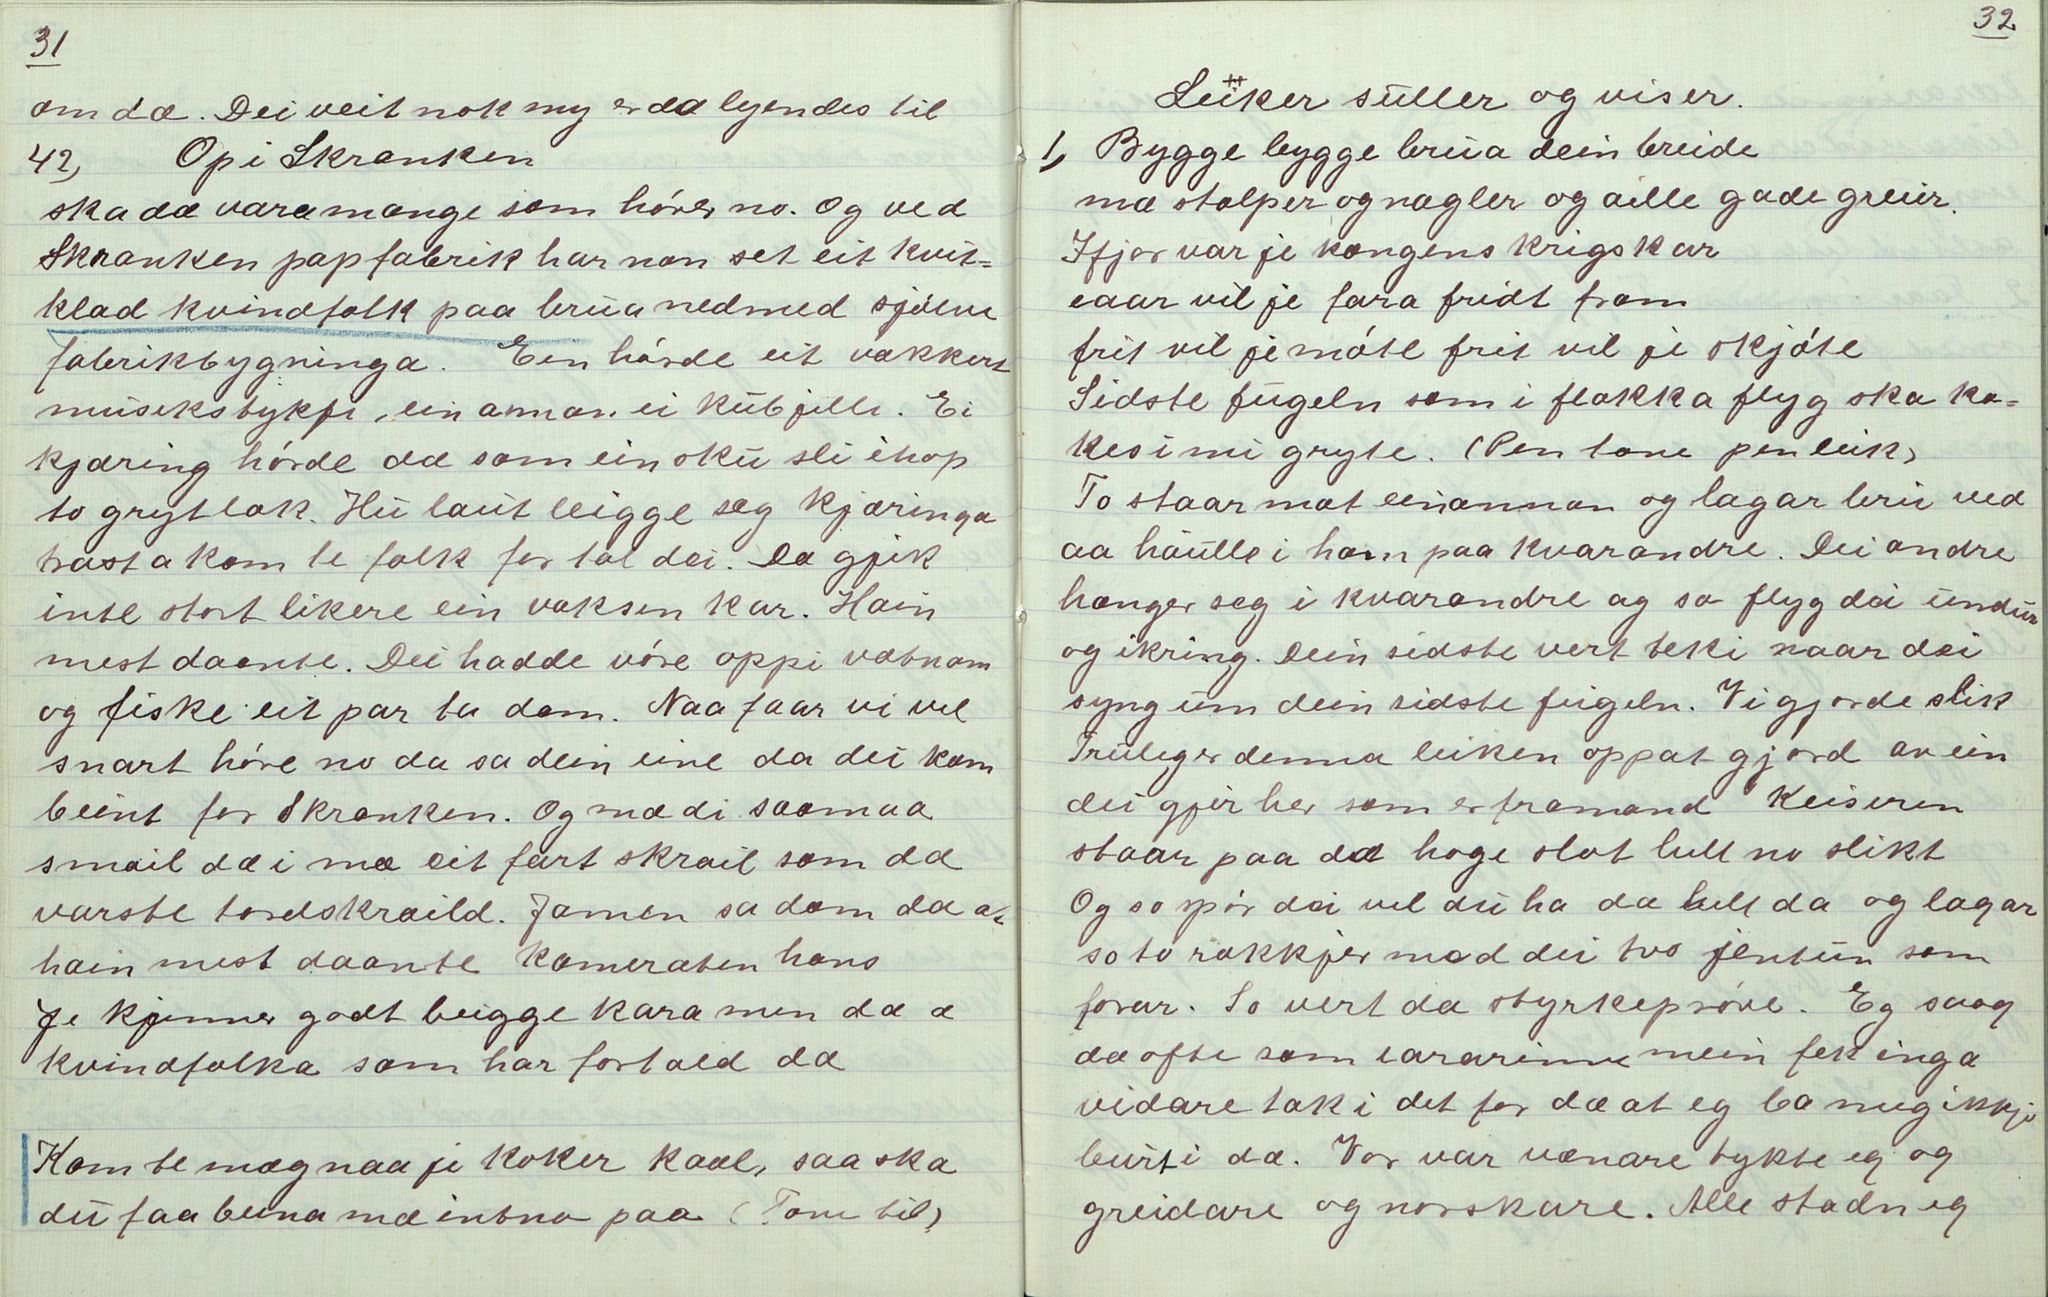 31
om dæ. Dei veit nok my er dæ lyendes til
42, Op i Skranken
ska dæ vara mange som hórer no. Og ved
Skranken papfabrik har non set eit kvit=
klad kvindfolk paa brua nedmed sjólve
fabrikbygninga. Ein hórde eit vakkert
museksbykje, ein annan ei kubjelle. Ei
kjæring hórde dæ som ein sku sli ihop
to grytlok. Hu laut leigge seg kjæringa
trast a kom te folk for tol dei. Da gjik
inte stort likere ein vaksen kar. Hain
mest daante. Dei hadde vóre oppi vatnom
og fiske eit par ta dom. Naa faar vi vel
snart hóre no da sa dein eine da dei kom
beint for Skranken. Og mæ di saamaa
smail dæ i mæ eit fart skrail som dæ
varste tordskraild. Jamen sa dom dæ a=
hain mest daante kameraten hans
Je kjenner godt beigge kara men dæ æ
kvindfolka som har fortæld dæ
Kom te mæg naa je koker kaal, saa ska
du faa beina mæ intno paa (Tone til)
32
Leiker suller og viser.
1, Bygge bygge brua dein breide
mæ stolper og nagler og aille gode greier.
Ifjor var je kongens krigskar
eaar vil je fara fridt fram
frit vil je móte frit vil je skjóte
Sidste fugeln som i flokka flyg ska ko=
kes i mi gryte. (Pen tone pen leik)
To staar mot einannan og lagar bru ved
aa haulle i hain paa kvarandre. Dei andre
hænger seg i kvarandre ag so flyg dei undur
og ikring. Dein sidste vert teki naar dei
syng um dein sidste fugeln. Vi gjorde slik
Truleg er denna leiken oppat gjord av ein
dei gjer her som er framand Keiseren
staar paa dæ hoge slot hell no slikt
Og so spór dei vel du ha dæ hell dæ og lagar
so to rækkjer mæd dei tvo jentun som
forar. So vert dæ styrkepróve. Eg saag
dæ ofte som lærarinne mein fek inga
vidare tak i det for dæ at eg ba meg ikkje
burt i dæ. Vor var vænare tykte eg og
greidare og norskare. Alle stadn eg